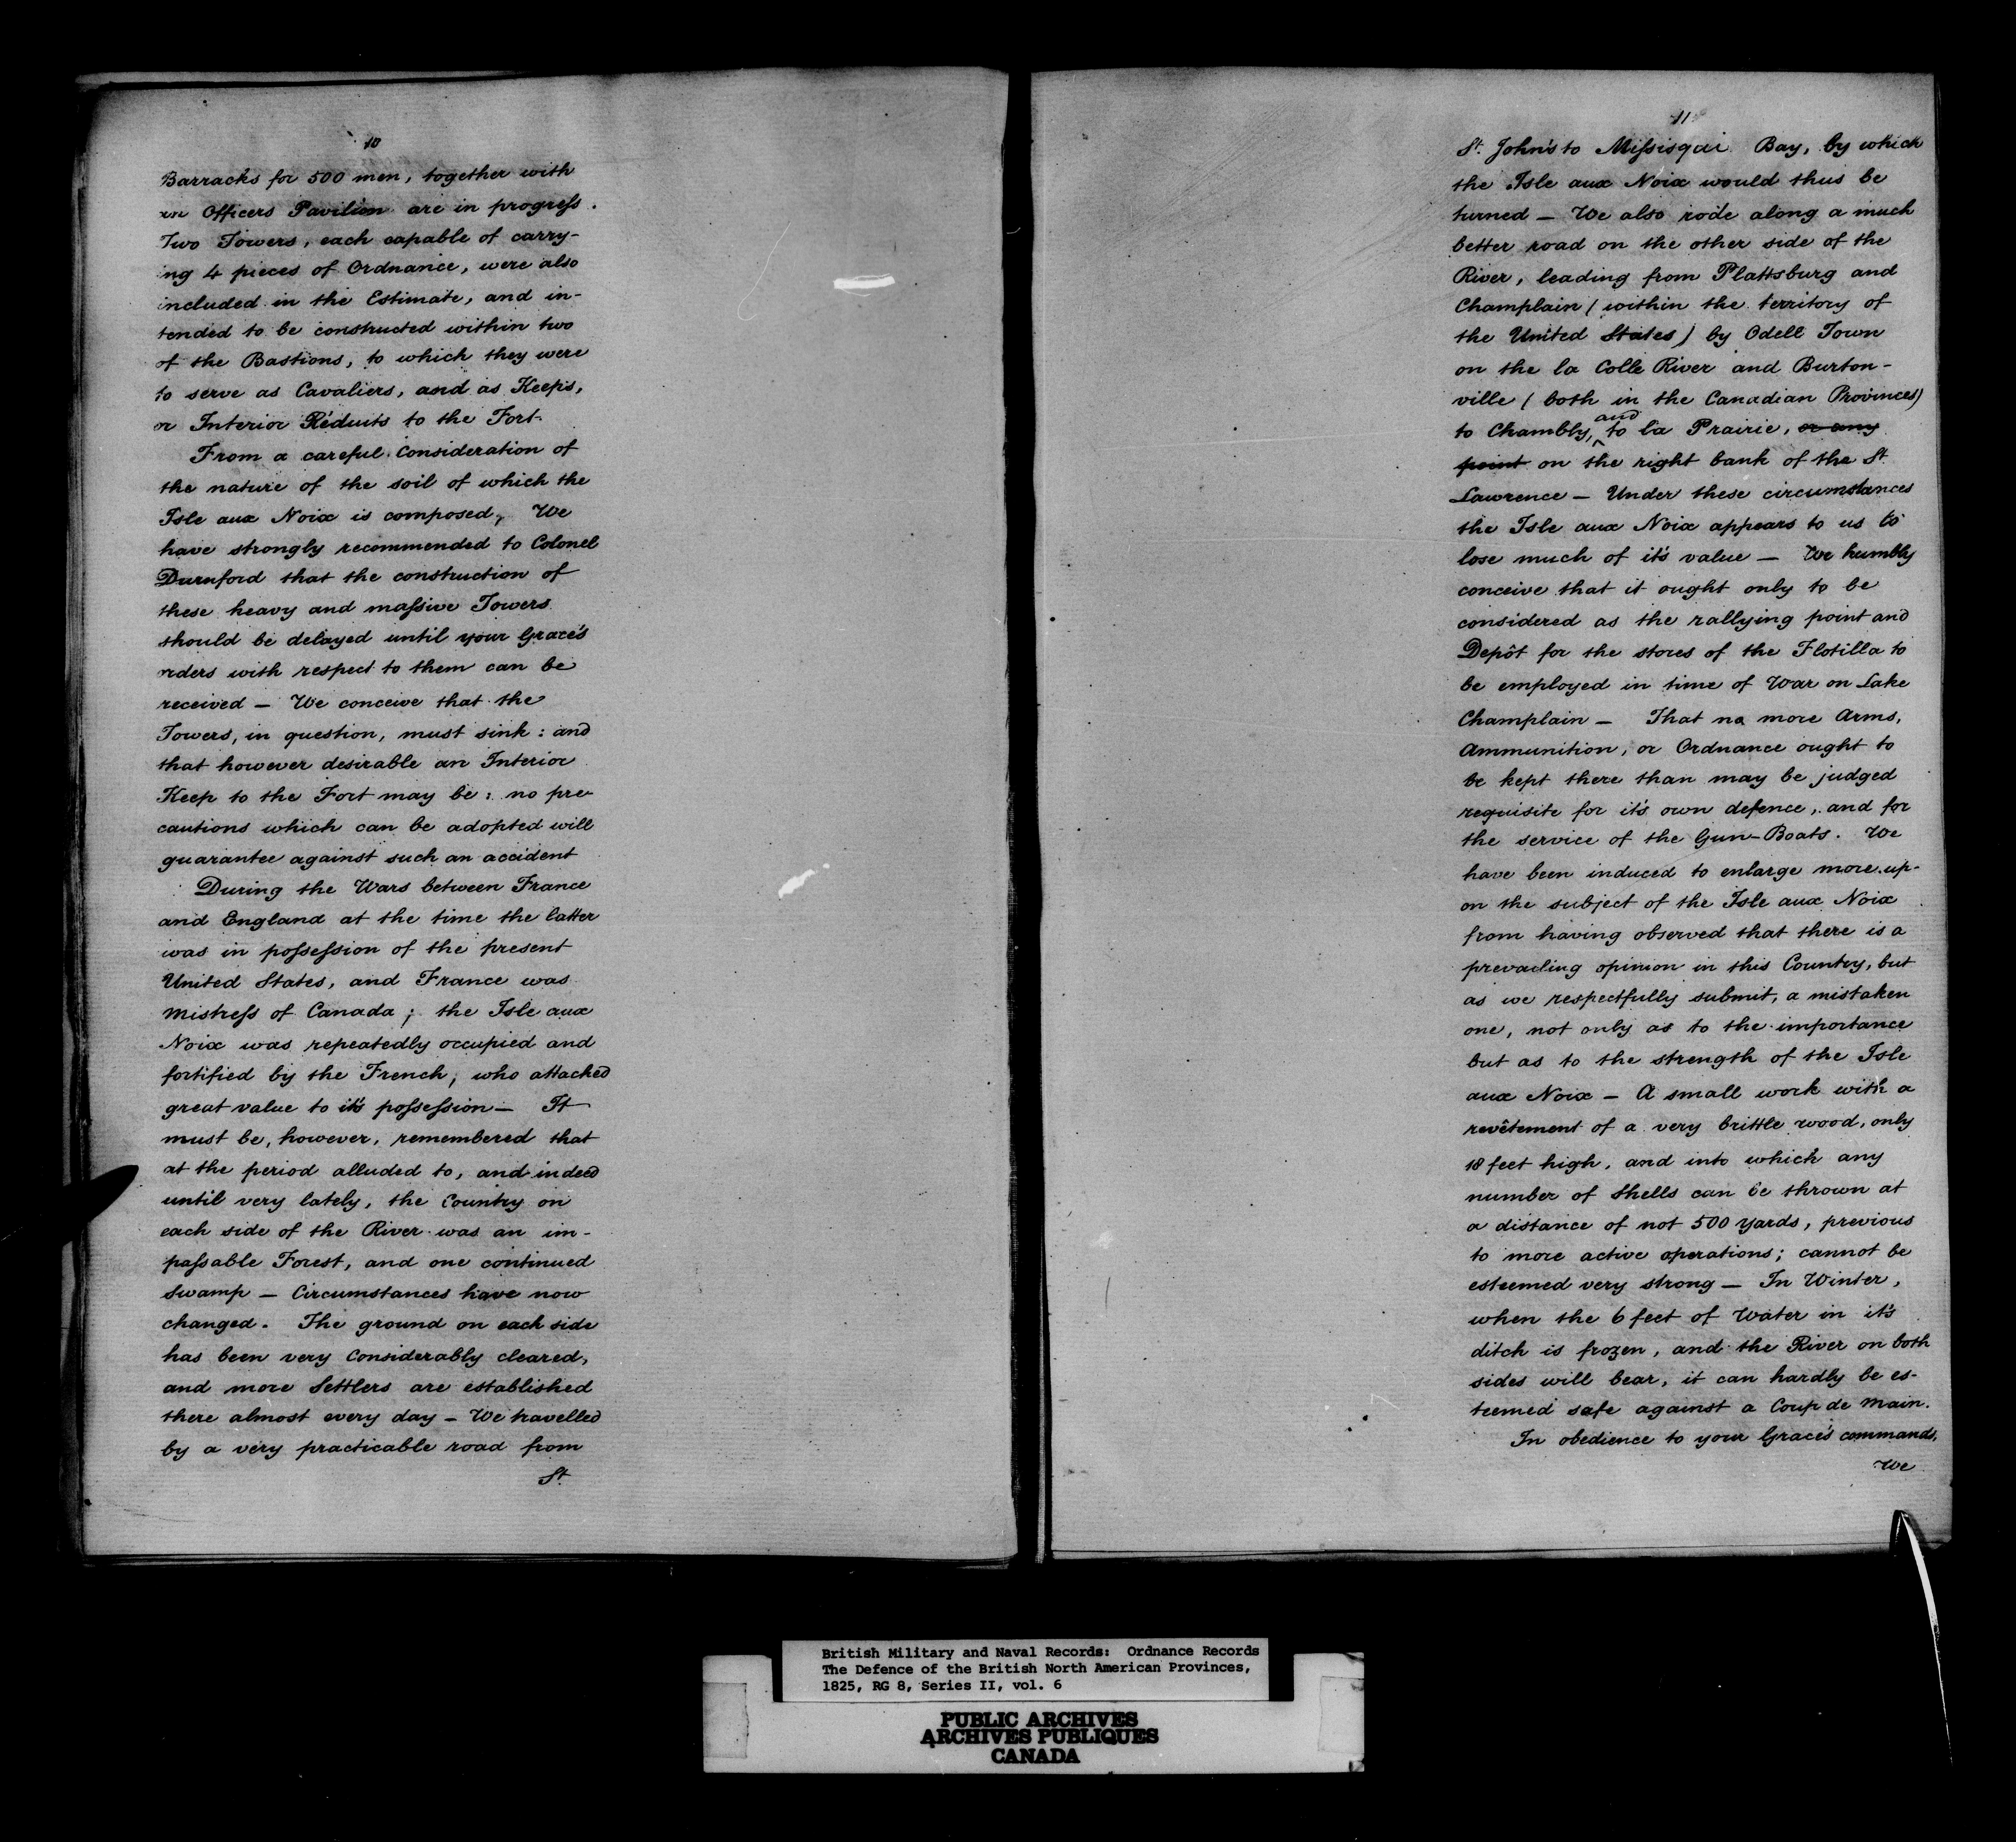 10
Barracks for 500 men, together with
an Officers Pavilion are in progress.
Two Towers, each capable of carry-
ing 4 pieces of Ordnance, were also
included in the Estimate, and in-
tended to be constructed within two
of the Bastions, to which they were
to serve as Cavaliers, and as Keeps,
or Interior Réduits to the Fort.
From a careful Consideration of
the nature of the soil of which the
Isle aux Noix is composed, We
have strongly recommended to Colonel
Durnford that the construction of
these heavy and massive Towers
should be delayed until your Grace's
orders with respect to them can be
received — We conceive that the
Towers, in question, must sink: and
that however desirable an Interior
Keep to the Fort may be: no pre-
cautions which can be adopted will
guarantee against such an accident
During the Wars between France
and England at the time the latter
was in possession of the present
United States, and France was
Mistress of Canada; the Isle aux
Noix was repeatedly occupied and
fortified by the French, who attached
great value to it's possession — It
must be, however, remembered that
at the period alluded to, and indeed
until very lately, the Country on
each side of the River was an im-
passable Forest, and one continued
Swamp — Circumstances have now
changed. The ground on each side
has been very Considerably cleared,
and more Settlers are established
there almost every day — We travelled
by a very practicable road from
St.
11
St. John's to Missisqui Bay, by which
the Isle aux Noix would thus be
turned — We also rode along a much
better road on the other side of the
River, leading from Plattsburg and
Champlain (within the territory of
the United States) by Odell Town
on the la Colle River and Burton-
ville (both in the Canadian Provinces)
to Chambly, and to la Prairie, or any
point on the right bank of the St.
Lawrence — Under these circumstances
the Isle aux Noix appears to us to
lose much of it's value — We humbly
conceive that it ought only to be
considered as the rallying point and
Depôt for the stores of the Flotilla to
be employed in time of War on Lake
Champlain — That no more Arms,
Ammunition, or Ordnance ought to
be kept there than may be judged
requisite for it's own defence, and for
the service of the Gun-Boats. We
have been induced to enlarge more up-
on the subject of the Isle aux Noix
from having observed that there is a
prevailing opinion in this Country, but
as we respectfully submit, a mistaken
one, not only as to the importance
but as to the strength of the Isle
aux Noix — A small work with a
revêtement of a very brittle wood, only
18 feet high, and into which any
number of Shells can be thrown at
a distance of not 500 yards, previous
to more active operations; cannot be
esteemed very strong — In Winter,
when the 6 feet of Water in it's
ditch is frozen, and the River on both
sides will bear, it can hardly be es-
teemed safe against a Coup de Main.
In obedience to your Grace's commands,
We
British Military and Naval Records: Ordnance Records
The Defence of the British North American Provinces,
1825, RG 8, Series II, vol. 6
PUBLIC ARCHIVES
ARCHIVES PUBLIQUES
CANADA